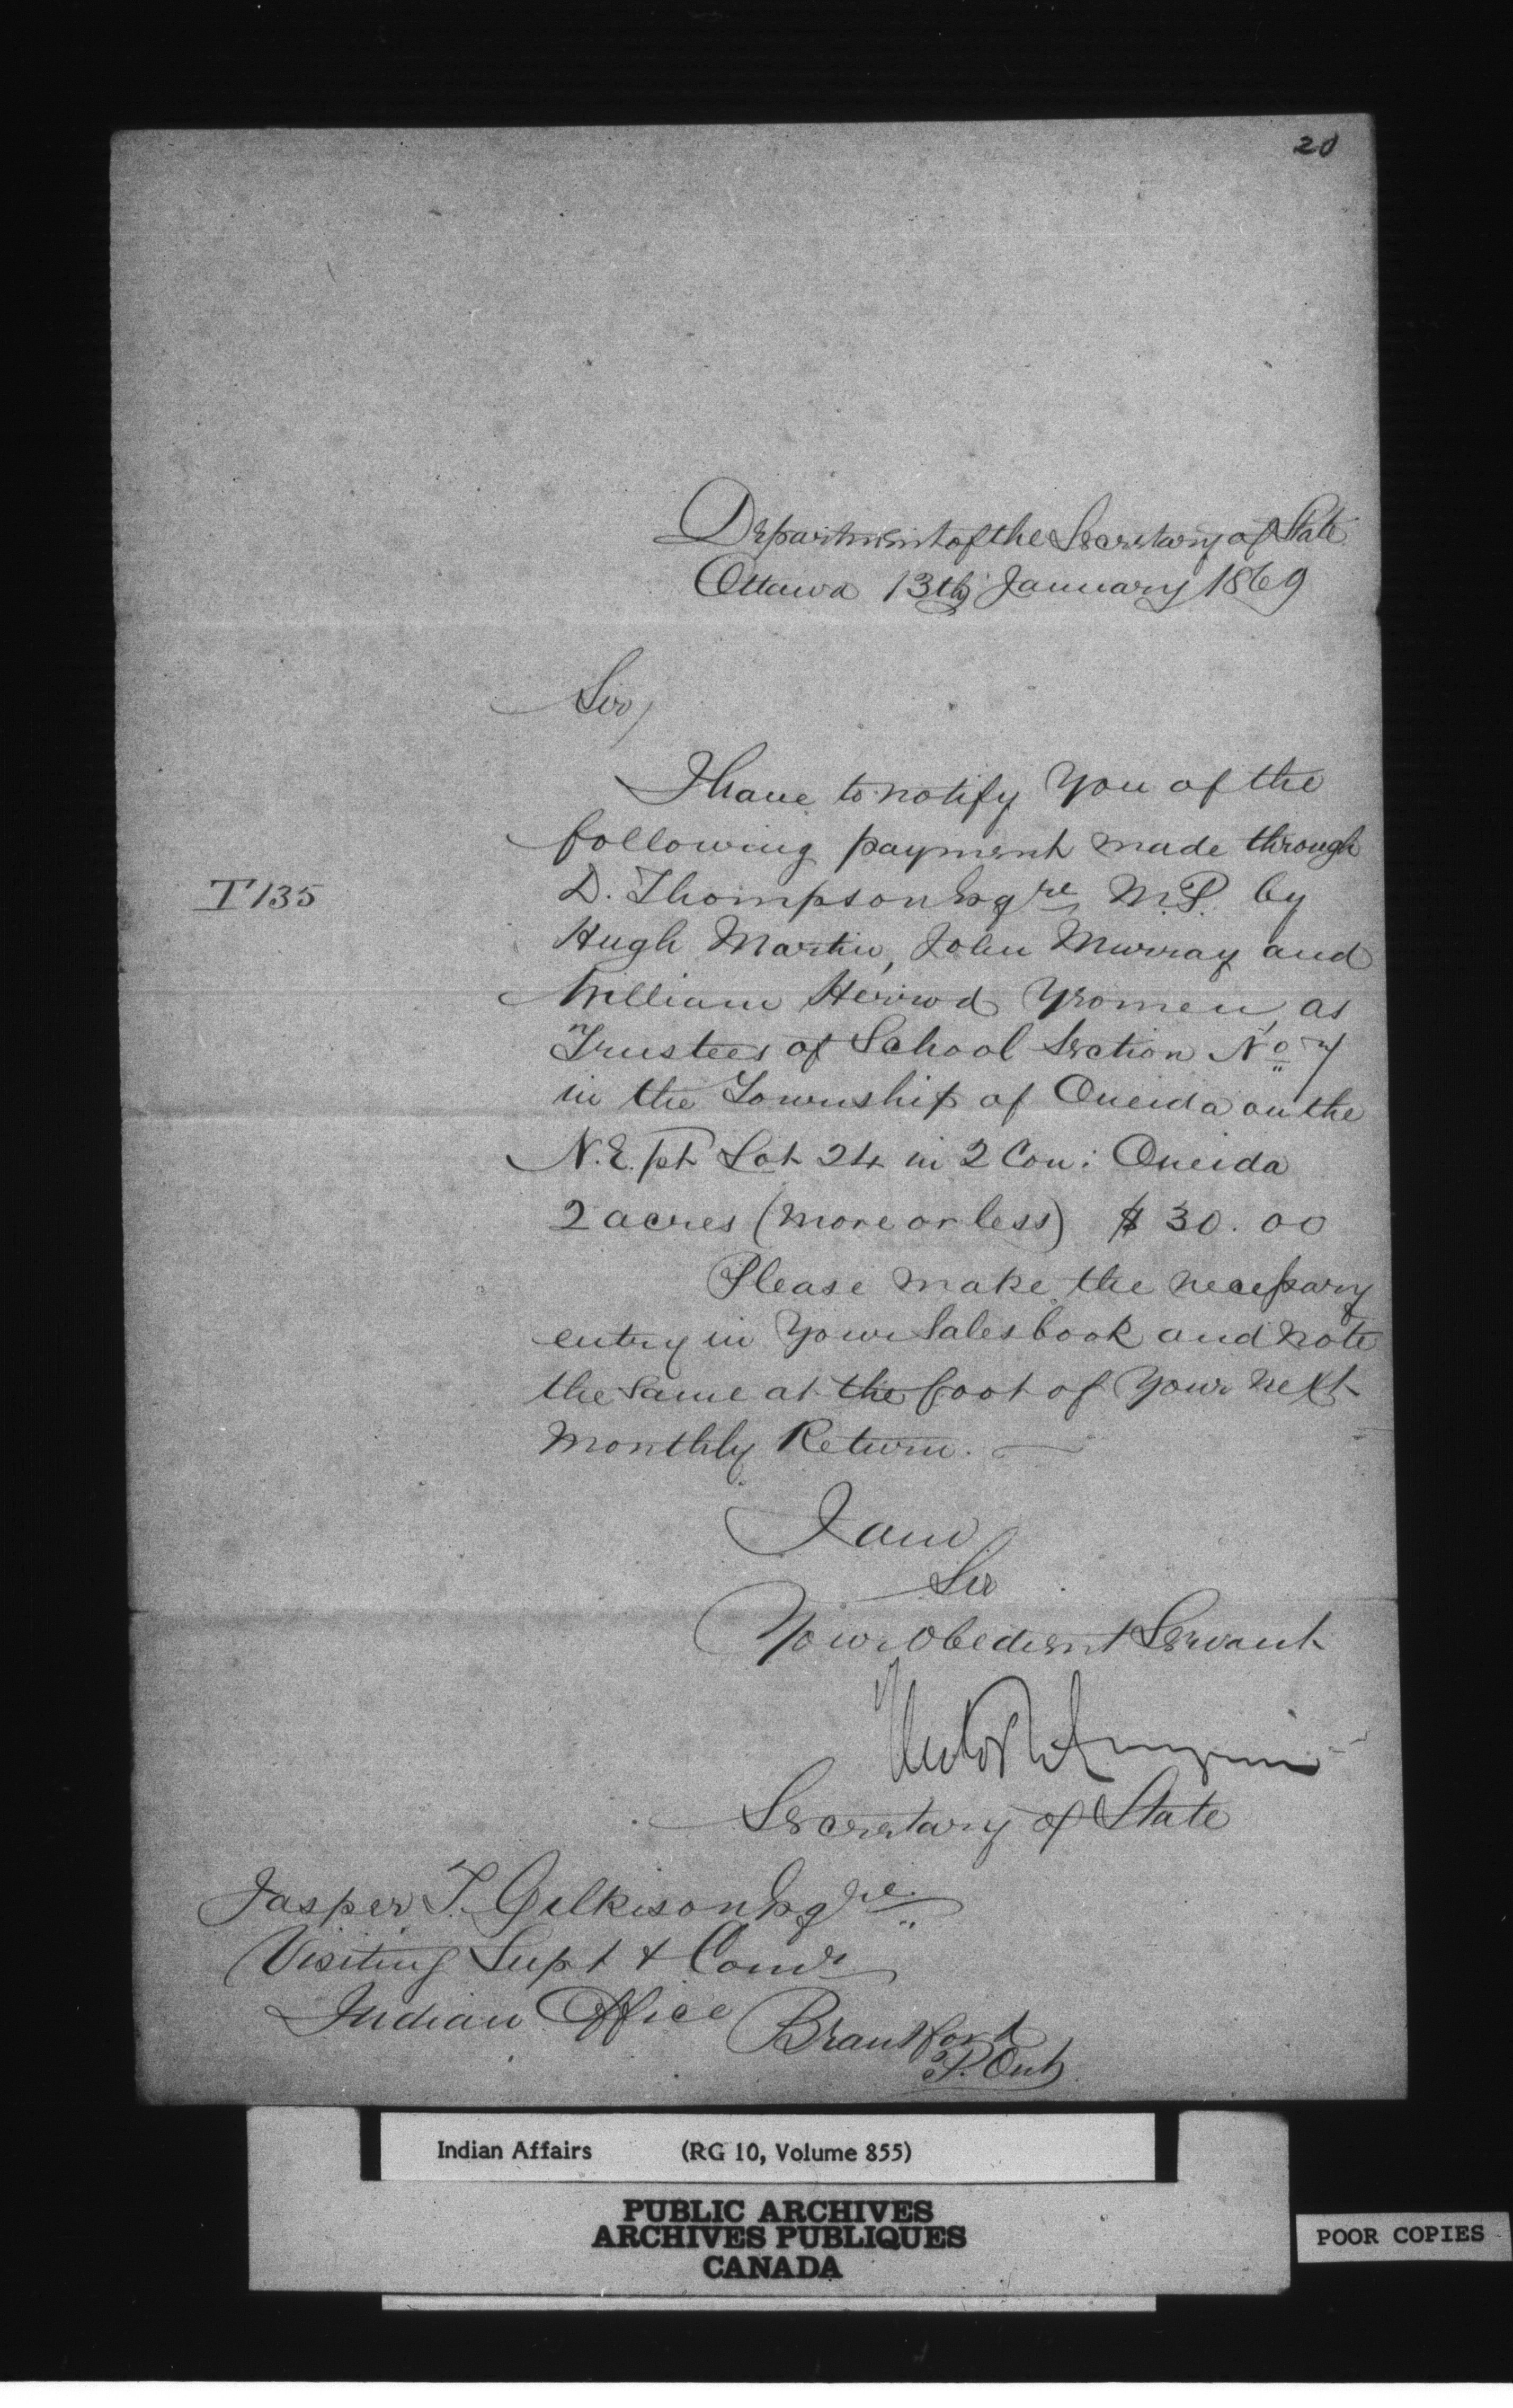 20
Department of the Secretary of State
Ottawa 13th January 1869
Sir,
I have to notify You of the
following payment made through
T 135
D. Thompson Esqre, M.P. by
Hugh Martin, John Murray and
William Yeomen, as
Trustees of School Section No 7
in the Township of Oneida on the
N.E. pt Lot 24 in 2 Con: Oneida
2 acres (more or less) $ 30.00
Please make the necessary
entry in Your Sales book and note
the same at the foot of Your next
Monthly Return.
I am
Sir
Your Obedient Servant
Secretary of State
Jasper T. Gilkison Esqre
Visiting Supt & Comr
Indian Office Brantford
P. Ont
Indian Affairs (RG 10, Volume 855)
PUBLIC ARCHIVES
ARCHIVES PUBLIQUES
CANADA
POOR COPIES